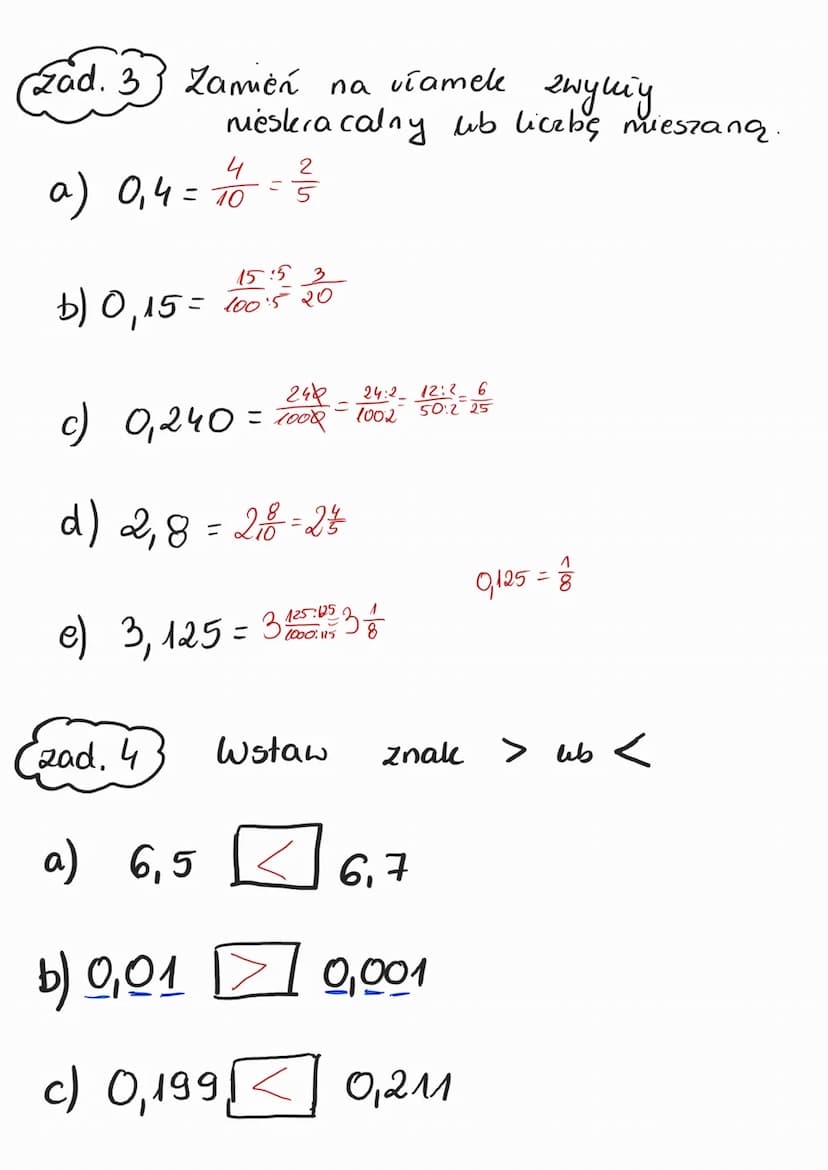 zad. 3 Zamień na ułamek zwykły
nieskracalny lub liczbę mieszaną.
a) 0,4 = 4/10 = 2/5
b) 0,15 = 15:5/100:5 = 3/20
c) 0,240 = 240/1000 = 24:2/100:2 = 12:2/50:2 = 6/25
d) 2,8 = 2 8/10 = 2 4/5
0,125 = 1/8
e) 3,125 = 3 125:125/1000:125 = 3 1/8
zad. 4 Wstaw znak > lub <
a) 6,5 < 6,7
b) 0,01 > 0,001
c) 0,199 < 0,211